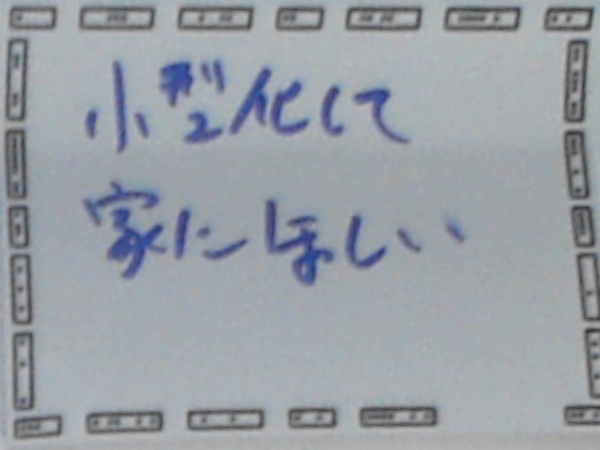 小型化して
家にほしい